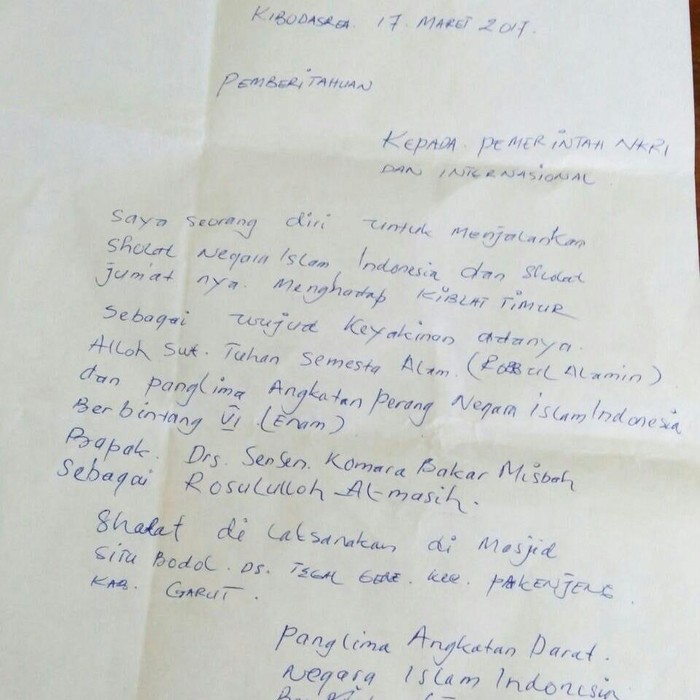 KIBODASREA. 17. MARET 2017.
PEMBERITAHUAN
KEPADA. PEMERINTAH NKRI
DAN INTERNASIONAL
Saya seorang diri untuk menjalankan
sholat Negara Islam Indonesia dan sholat
jum'at nya. Menghadap KIBLAT TIMUR
sebagai wujud Keyakinan adanya.
Alloh Swt. Tuhan Semesta Alam. (Robbul Alamin)
dan panglima Angkatan perang Negara islam Indonesia
Berbintang VI (Enam)
Bapak. Drs. Sensen. Komara Bakar Misbah
sebagai Rosululloh Al-masih.
Shalat di Laksanakan di Masjid
Situ Bodol. Ds. TEGAL GEDE. KEC. PAKENJENG.
KAB. GARUT.
panglima Angkatan Darat.
Negara Islam Indonesia